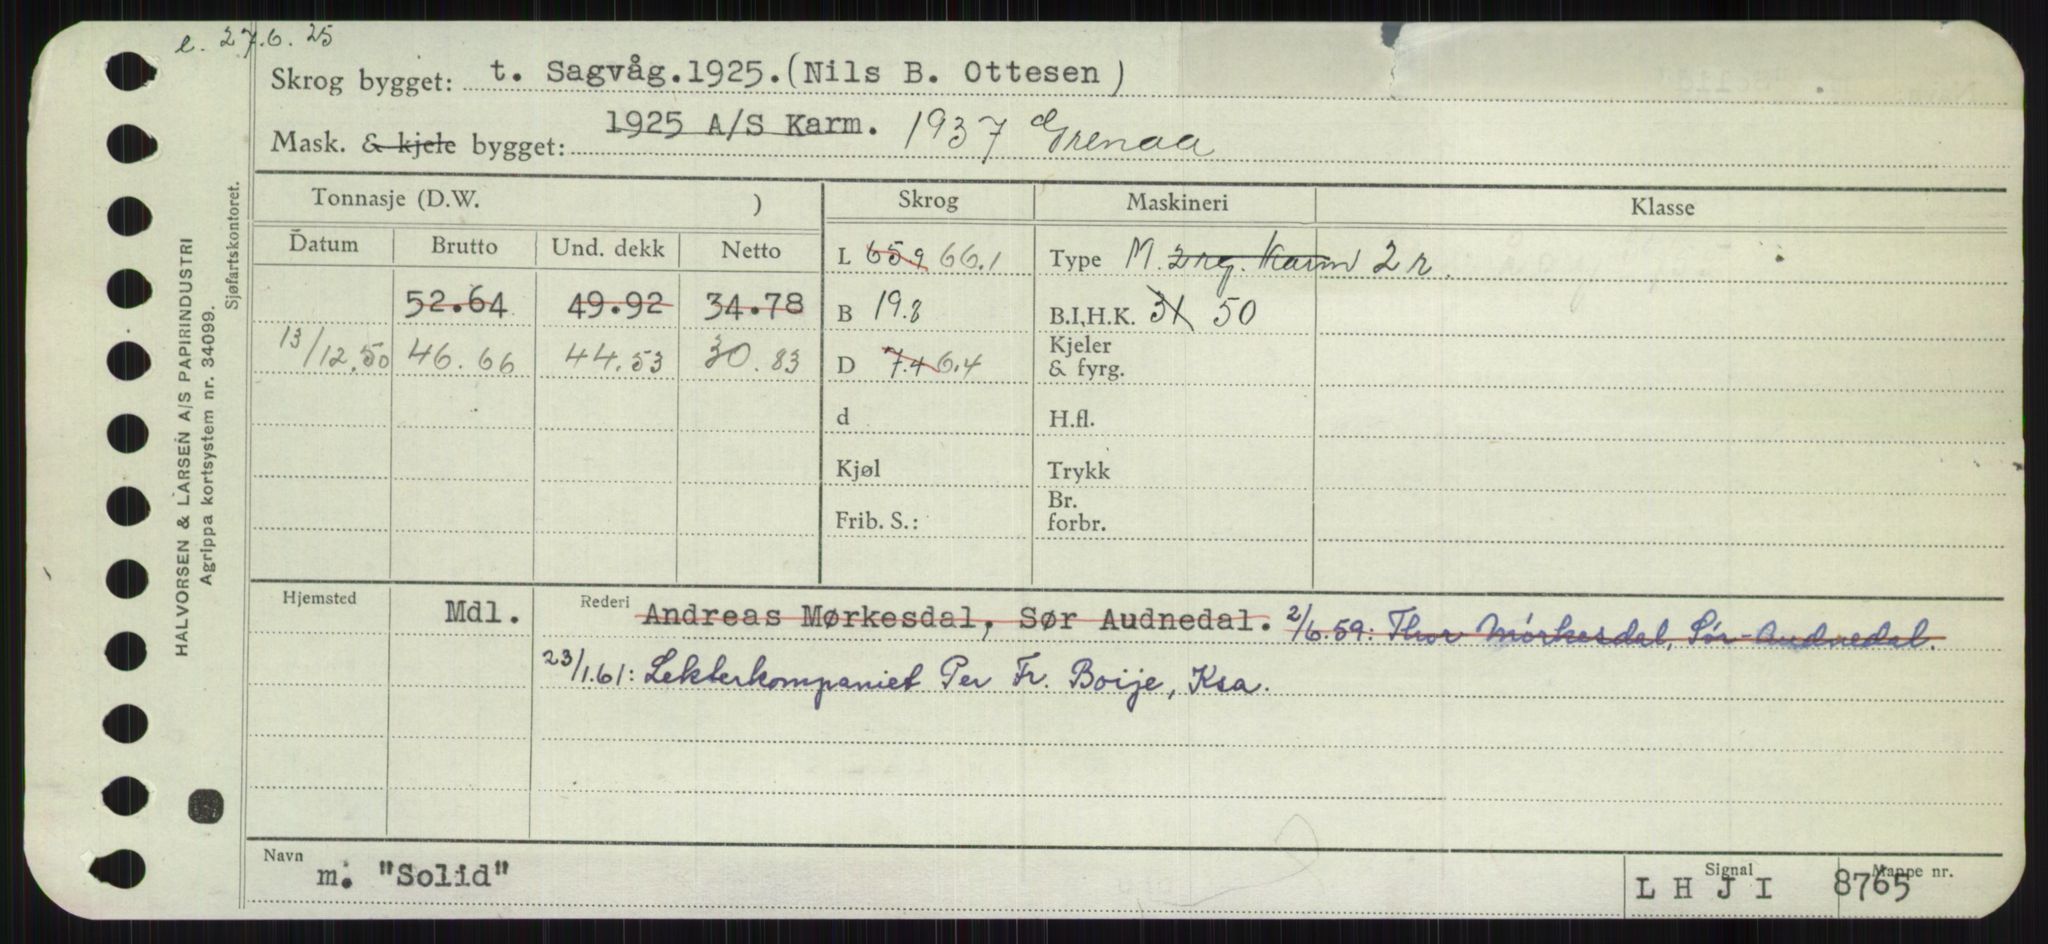 e. 27.6.25
Skrog bygget: t. Sagvåg.1925.(Nils B. Ottesen)
Mask. & kjele bygget: 1925 A/S Karm. 1937 Grenaa
Tonnasje (D.W. ) Skrog Maskineri Klasse
Datum Brutto Und. dekk Netto L 65.9 66.1 Type M. 2 rg. Karm 2 r.
52.64 49.92 34.78 B 19.8 B.I.H.K. 31 50
13/12.50 46.66 44.53 30.83 D 7.4 6.4 Kjeler & fyrg.
d H.fl.
Kjøl Trykk
Frib. S.: Br. forbr.
Hjemsted Mdl. Rederi Andreas Mørkesdal, Sør Audnedal. 2/6.59: Thor Mørkesdal, Sør-Audnedal.
23/1.61: Lekterkompaniet Per Fr. Boije, Ksa.
Navn m. "Solid" Signal L H J I Mappe nr. 8765
HALVORSEN & LARSEN A/S PAPIRINDUSTRI
Agrippa kortsystem nr. 34099.
Sjøfartskontoret.